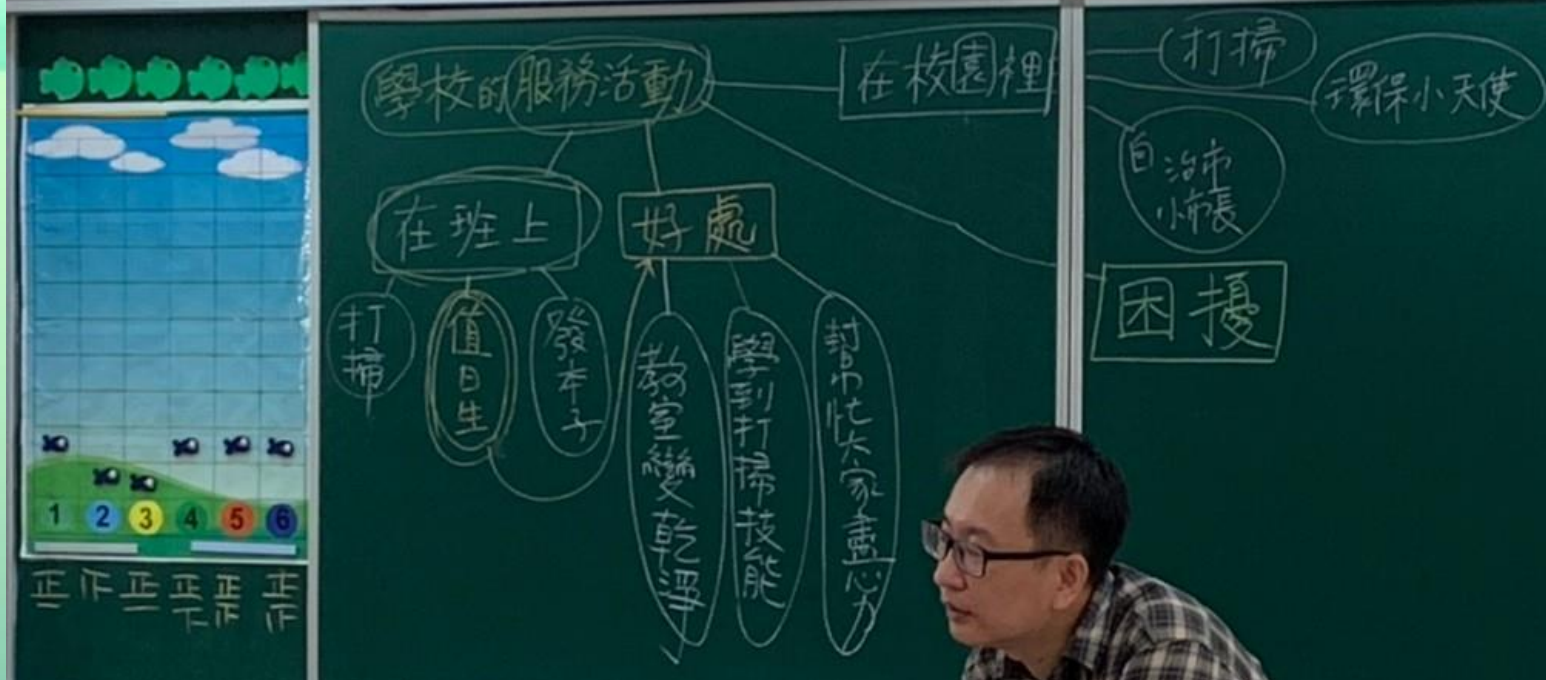 學校的服務活動
在校園裡
打掃
環保小天使
自治市
小市長
在班上
好處
困擾
打掃
值日生
發本子
教室變乾淨
學到打掃技能
幫忙大家盡心力
1 2 3 4 5 6